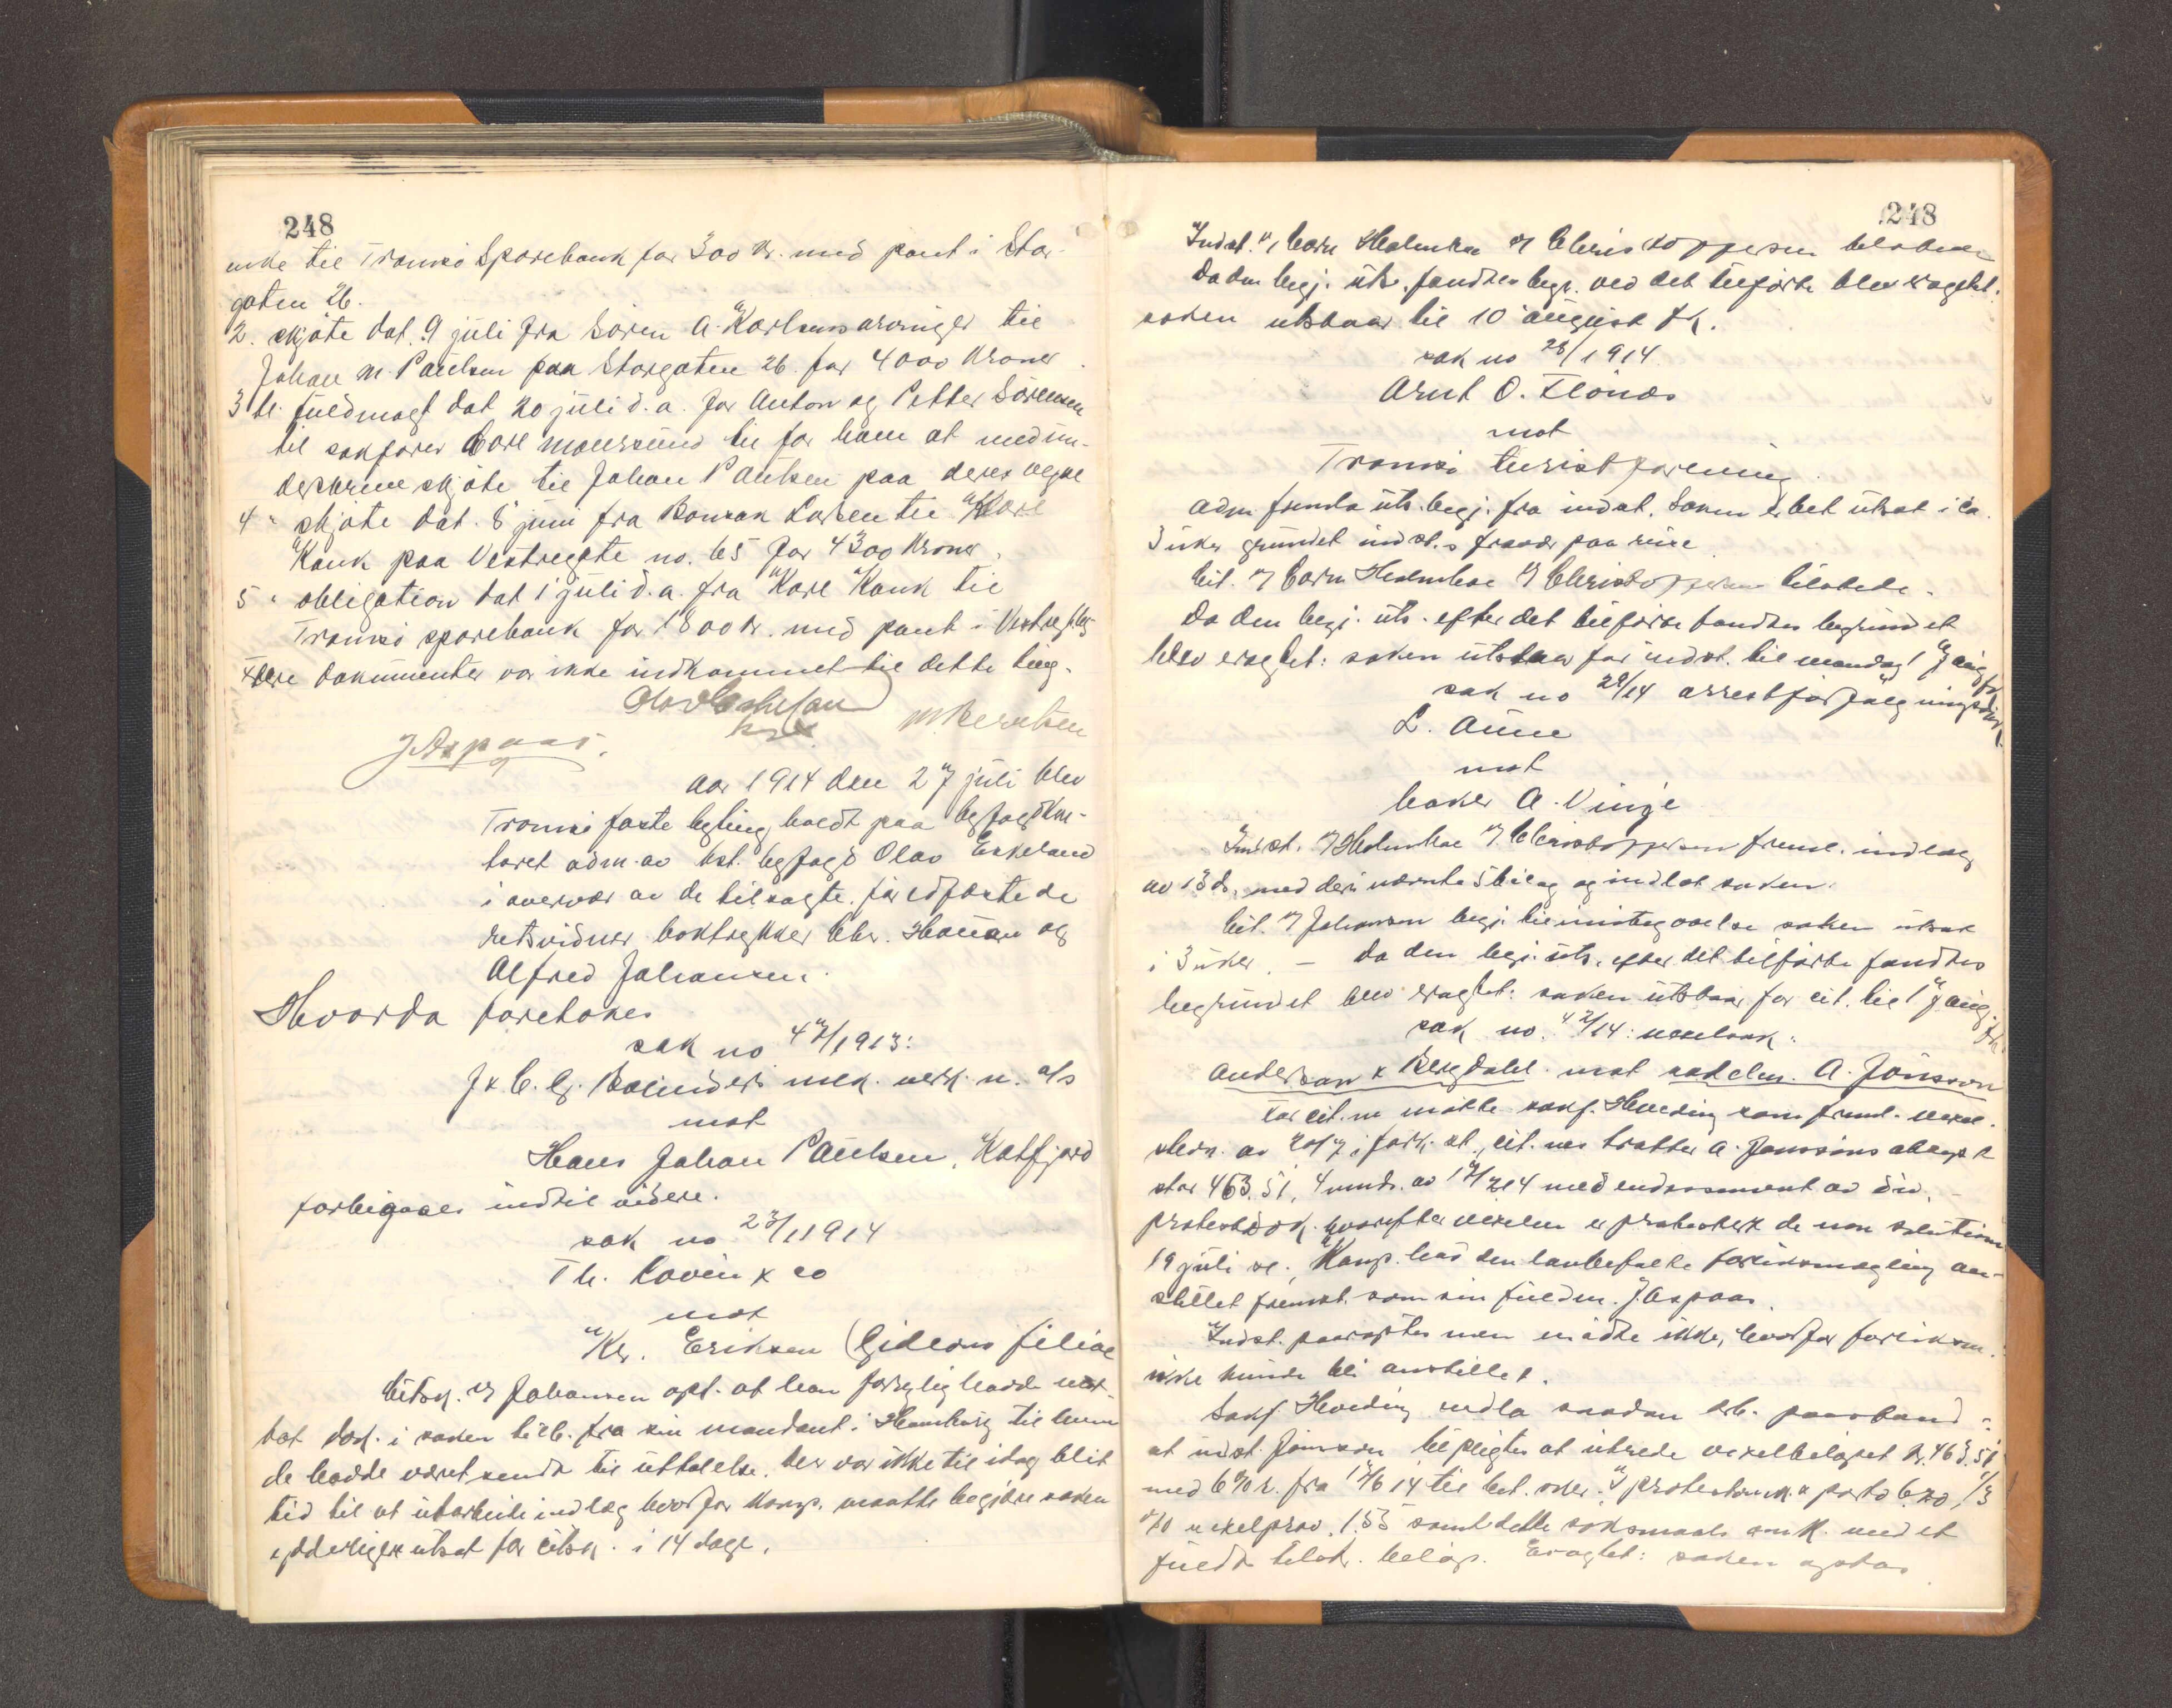 248
enke til Tromsö Sparebank for 300 kr. med pant i Stor-
gaten 26.
2. skjöte dat. 9 juli fra Sören A. Karlsens arvinger til
Johan M. Paulsen paa Storgaten 26 for 4000 kroner
3 tl. fuldmagt dat 20 juli d.a. for Anton og Petter Sörensen
til sakförer Carl Moursund til for ham at medun-
derskrive skjöte til Johan Paulsen paa deres vegne
4 " skjöte dat. 8 juni fra Larsen til Kare
Kank paa Vestregate no. 65 for 4300 kroner.
5 " obligation dat 1 juli d.a. fra Kare Kank til
Tromsö sparebank for 1800 kr. med pant i
Flere dokumenter var ikke indkommet til dette ting.
M. Berntsen
J Aspaas.
Aar 1914 den 27 juli blev
Tromsö faste byting holdt paa byfogdkon-
toret adm. av kst. byfogd Olav Eskeland
i overvær av de tilsagte för edfæstede
retsvidner boktrykker Chr. Hauan og
Alfred Johansen.
Hvorda foretokes
sak no 47/1913:
J & C. G. Bolinders mek. verk. n. a/s
mot
Hans Johan Paulsen, Katfjord
forbigaaes indtil videre.
sak no 23/1914
Th. Lovin & co
mot
Kr. Eriksen (Gideons filial
Citsk. v/ Johansen opl. at han forgjelig hadde mot-
tat dok. i saken tilb. fra sin mandant i Hamburg til hvem
de hadde været sendt til uttalelse. Der var ikke til idag blit
tid til at utarbeide indlæg hvorfor komp. maatte begjære saken
ydderligere utsat for citsk. i 14 dage.
248
Indst. v/ Carn Holmboe v/ Christoppersen tilstede
Da den begj. uts. fandtes begr. ved det tilförte blev eragtet:
saken utstaar til 10 august fk.
sak no 28/1914
Arnt O. Flönæs
mot
Tromsö turistforening
Adm fremla uts. begj. fra indst. Saken er bet utsat i ca.
3 uker grundet indst.s fravær paa reise
Cit. v/ Carn Holmboe v/ Christoppersen tilstede.
Da den begj. uts. efter det tilförte fandtes begrundet
blev eragtet: saken utstaar for indst. til mandag 17 aug. fk
sak no 29/14 arrestforfølgning
L. Aune
mot
baker A. Vinje
Indst. v/ Holmboe v/ Christoppersen freml. indlæg
av 13 ds. med deri nævnte 5 bilag og indlot saken.
Cit. v/ Johansen begj. til imötegaaelse saken utsat
i 3 uker. — Da den begj. uts. efter det tilförte fandtes
begrundet blev eragtet: saken utstaar for cit. til 17 aug. fk.
sak no. 42/14: vexelsak:
Anderson & Bergdahl mot sadelm. A. Jönsson
For cit.ne mötte sakf. Hveding som freml. vexel-
stevn. av 20/7 i fork. st., cit. nes tratte A. Jonssons aksept
stor 463.51, 4 mnd. av 17/2 14 med endossement av div. —
protestdok. hvorefter vexelen er protestert de non solution
19 juli sl.; Komp. lod den lovbefalte forliksmægling an-
stillet fremst. som sin fuldm. J. Aspaas.
Indst. paaroptes men mödte ikke, hvorfor forliksm.
ikke kunde bli anstillet.
Sakf Hveding indla saadan erb. paastand:
at indst. Jönsson tilpligtes at utrede vexelbelöpet kr. 463.51
med 6 % r. fra 17/6 14 til bet. sker, protestomk. & porto 6.20, 1/3
% vexelprov. 1.55 samt dette söksmaals omk. med et
fuldt tilstr. belöp. Eragtet: saken optas